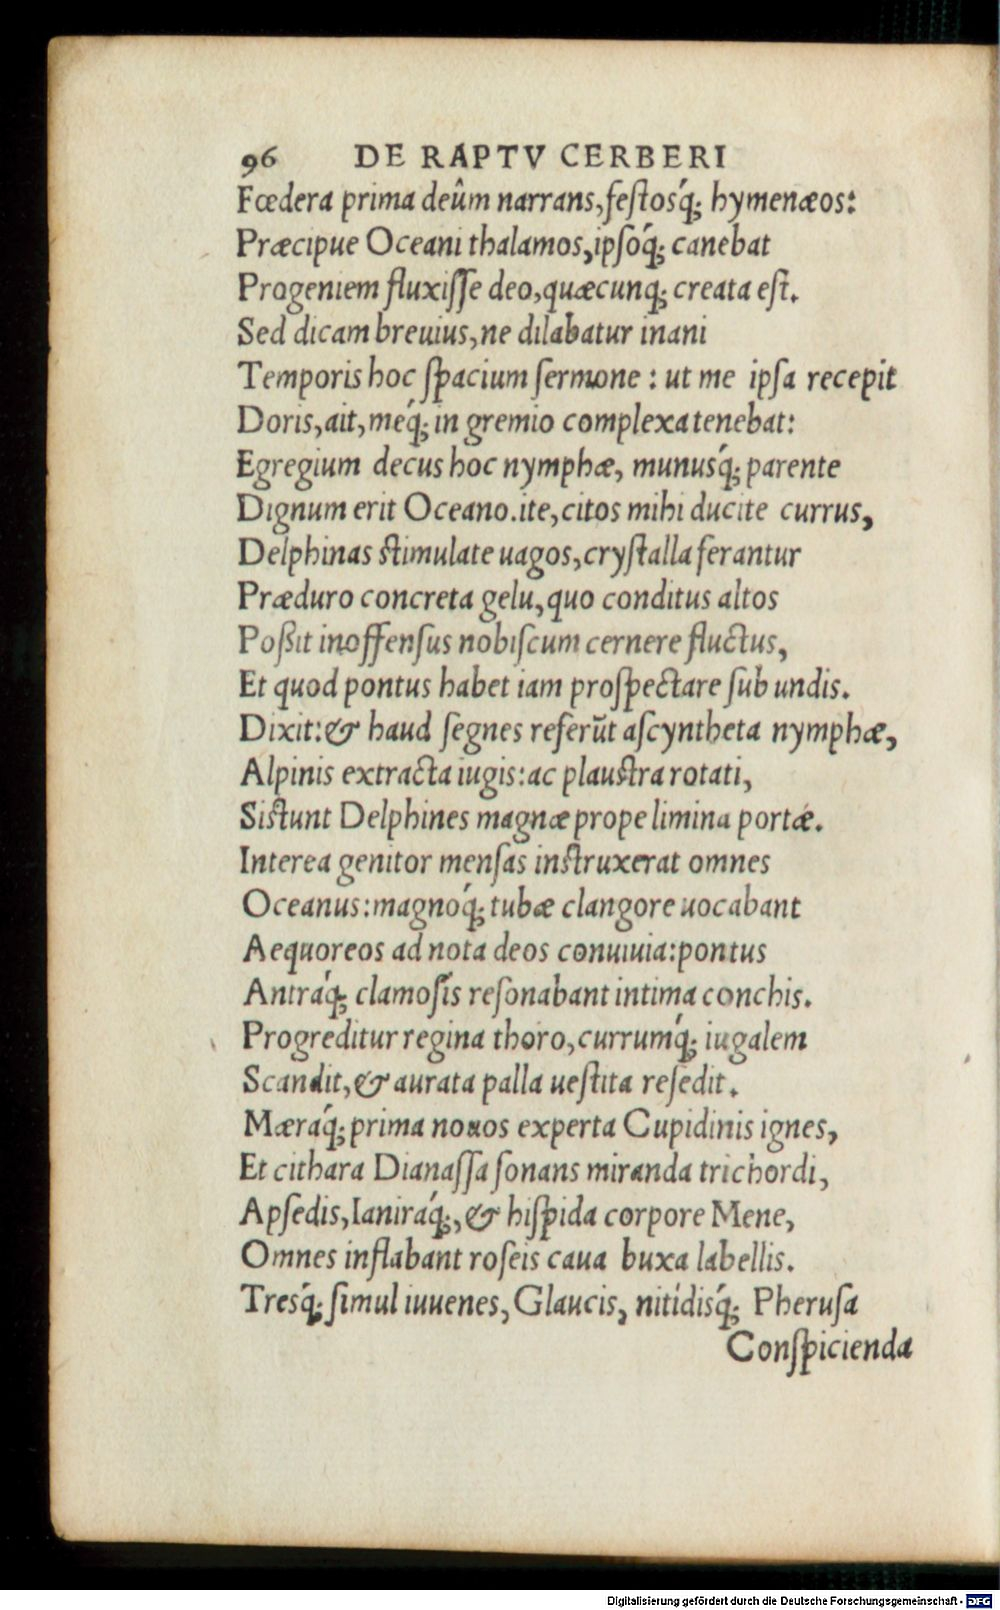 96 DE RAPTV CERBERI
Fœdera prima deûm narrans, feſtosq́; hymenæos:
Præcipue Oceani thalamos, ipſoq́; canebat
Progeniem fluxiſſe deo, quæcunq; creata eſt.
Sed dicam breuius, ne dilabatur inani
Temporis hoc ſpacium ſermone : ut me ipſa recepit
Doris, ait, meq́; in gremio complexa tenebat:
Egregium decus hoc nymphæ, munusq́; parente
Dignum erit Oceano. ite, citos mihi ducite currus,
Delphinas ſtimulate uagos, cryſtalla ferantur
Præduro concreta gelu, quo conditus altos
Poßit inoffenſus nobiſcum cernere fluctus,
Et quod pontus habet iam proſpectare ſub undis.
Dixit: & haud ſegnes referūt aſcyntheta nymphæ,
Alpinis extracta iugis: ac plauſtra rotati,
Siſtunt Delphines magnæ prope limina portæ.
Interea genitor menſas inſtruxerat omnes
Oceanus: magnoq́; tubæ clangore uocabant
Aequoreos ad nota deos conuiuia: pontus
Antraq́; clamoſis reſonabant intima conchis.
Progreditur regina thoro, currumq́; iugalem
Scandit, & aurata palla ueſtita reſedit.
Mæraq́; prima nouos experta Cupidinis ignes,
Et cithara Dianaſſa ſonans miranda trichordi,
Apſedis, Ianiraq́;, & hiſpida corpore Mene,
Omnes inflabant roſeis caua buxa labellis.
Tresq́; ſimul iuuenes, Glaucis, nitidisq́; Pheruſa
Conſpicienda
Digitalisierung gefördert durch die Deutsche Forschungsgemeinschaft - DFG